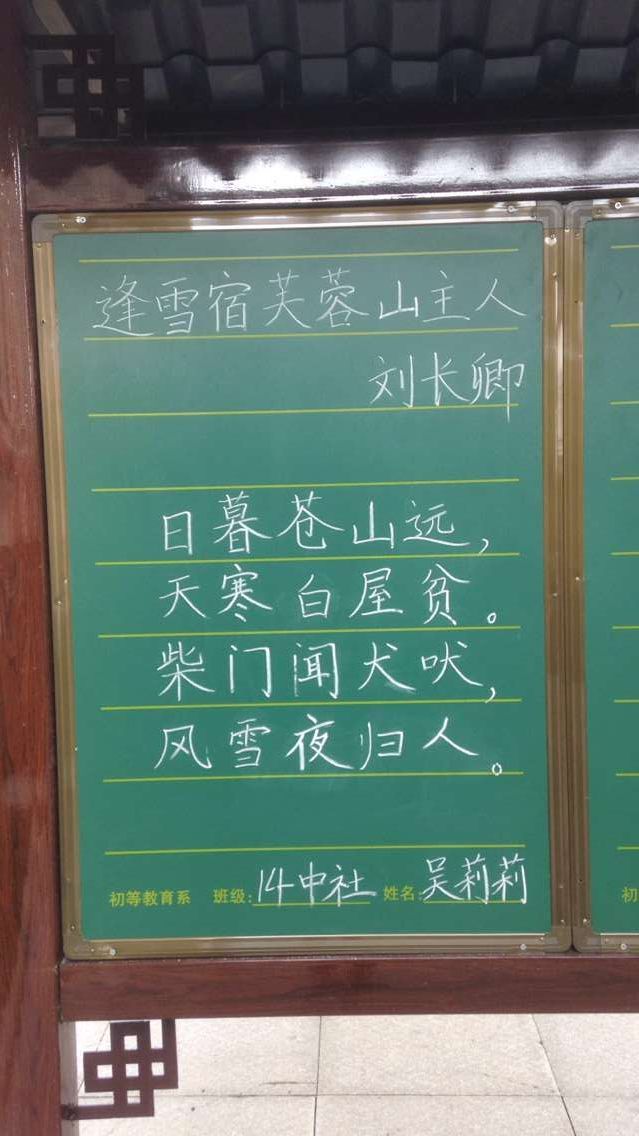 逢雪宿芙蓉山主人
刘长卿
日暮苍山远，
天寒白屋贫。
柴门闻犬吠，
风雪夜归人。
初等教育系 班级：14中社 姓名：吴莉莉
初